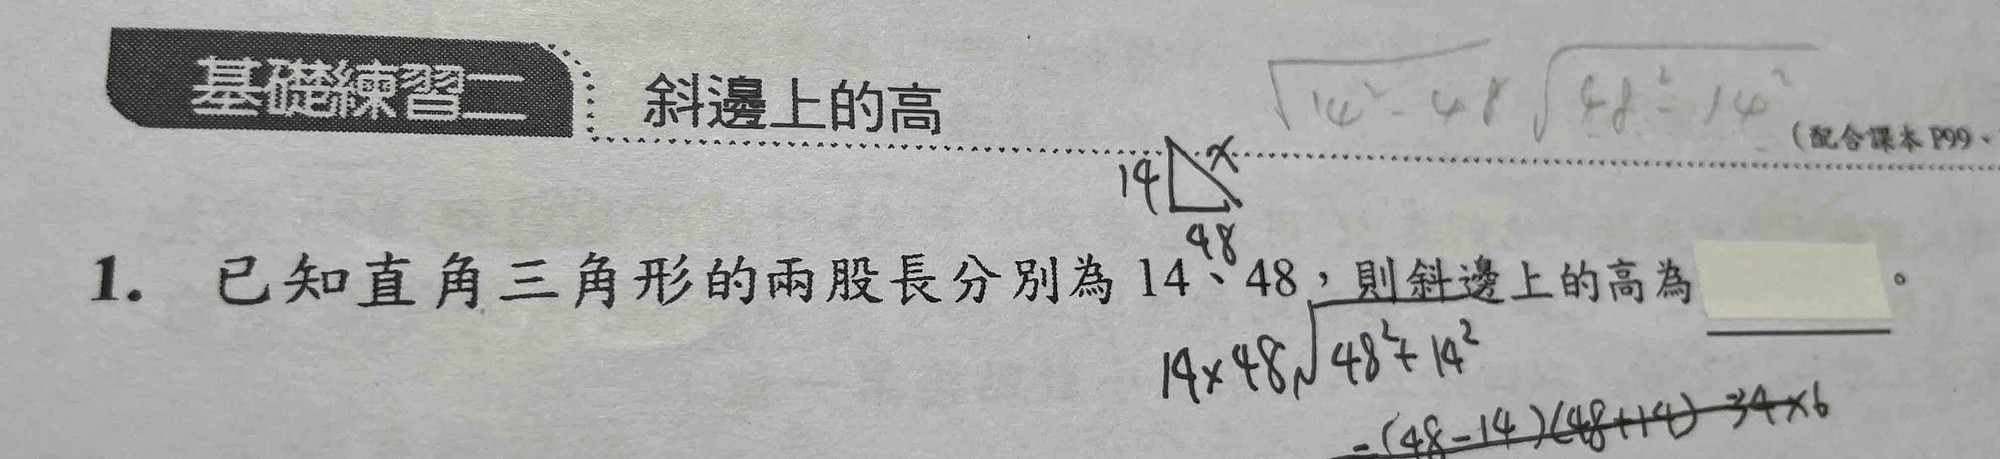 基礎練習二 斜邊上的高
√14²-48 √48²-14²
(配合課本P99、
14 x
48
1. 已知直角三角形的兩股長分別為14、48,則斜邊上的高為 。
14×48 √48²+14²
=(48-14)(48+14) 34×6